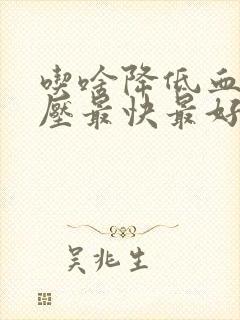 喫啥降低血
壓最快最好
吴兆生